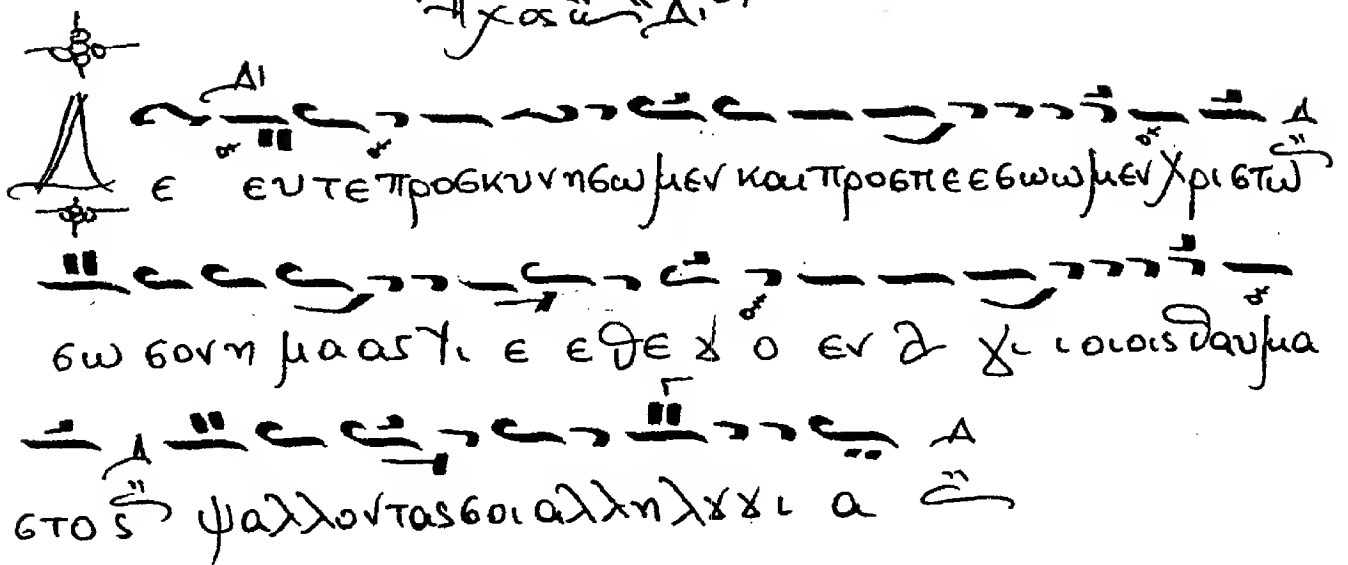 Ἦχος ᾶ Δι
Δι
Δ ε ευτεπροσκυνησωμεν και προσπεεεσωωμεν Χριστω Δ
σωσον ημαας Υι ε εθεȣ ο εν αγιιοιοις θαυμα
στος Δ ψαλλοντας σοι αλληλȣȣι α Δ